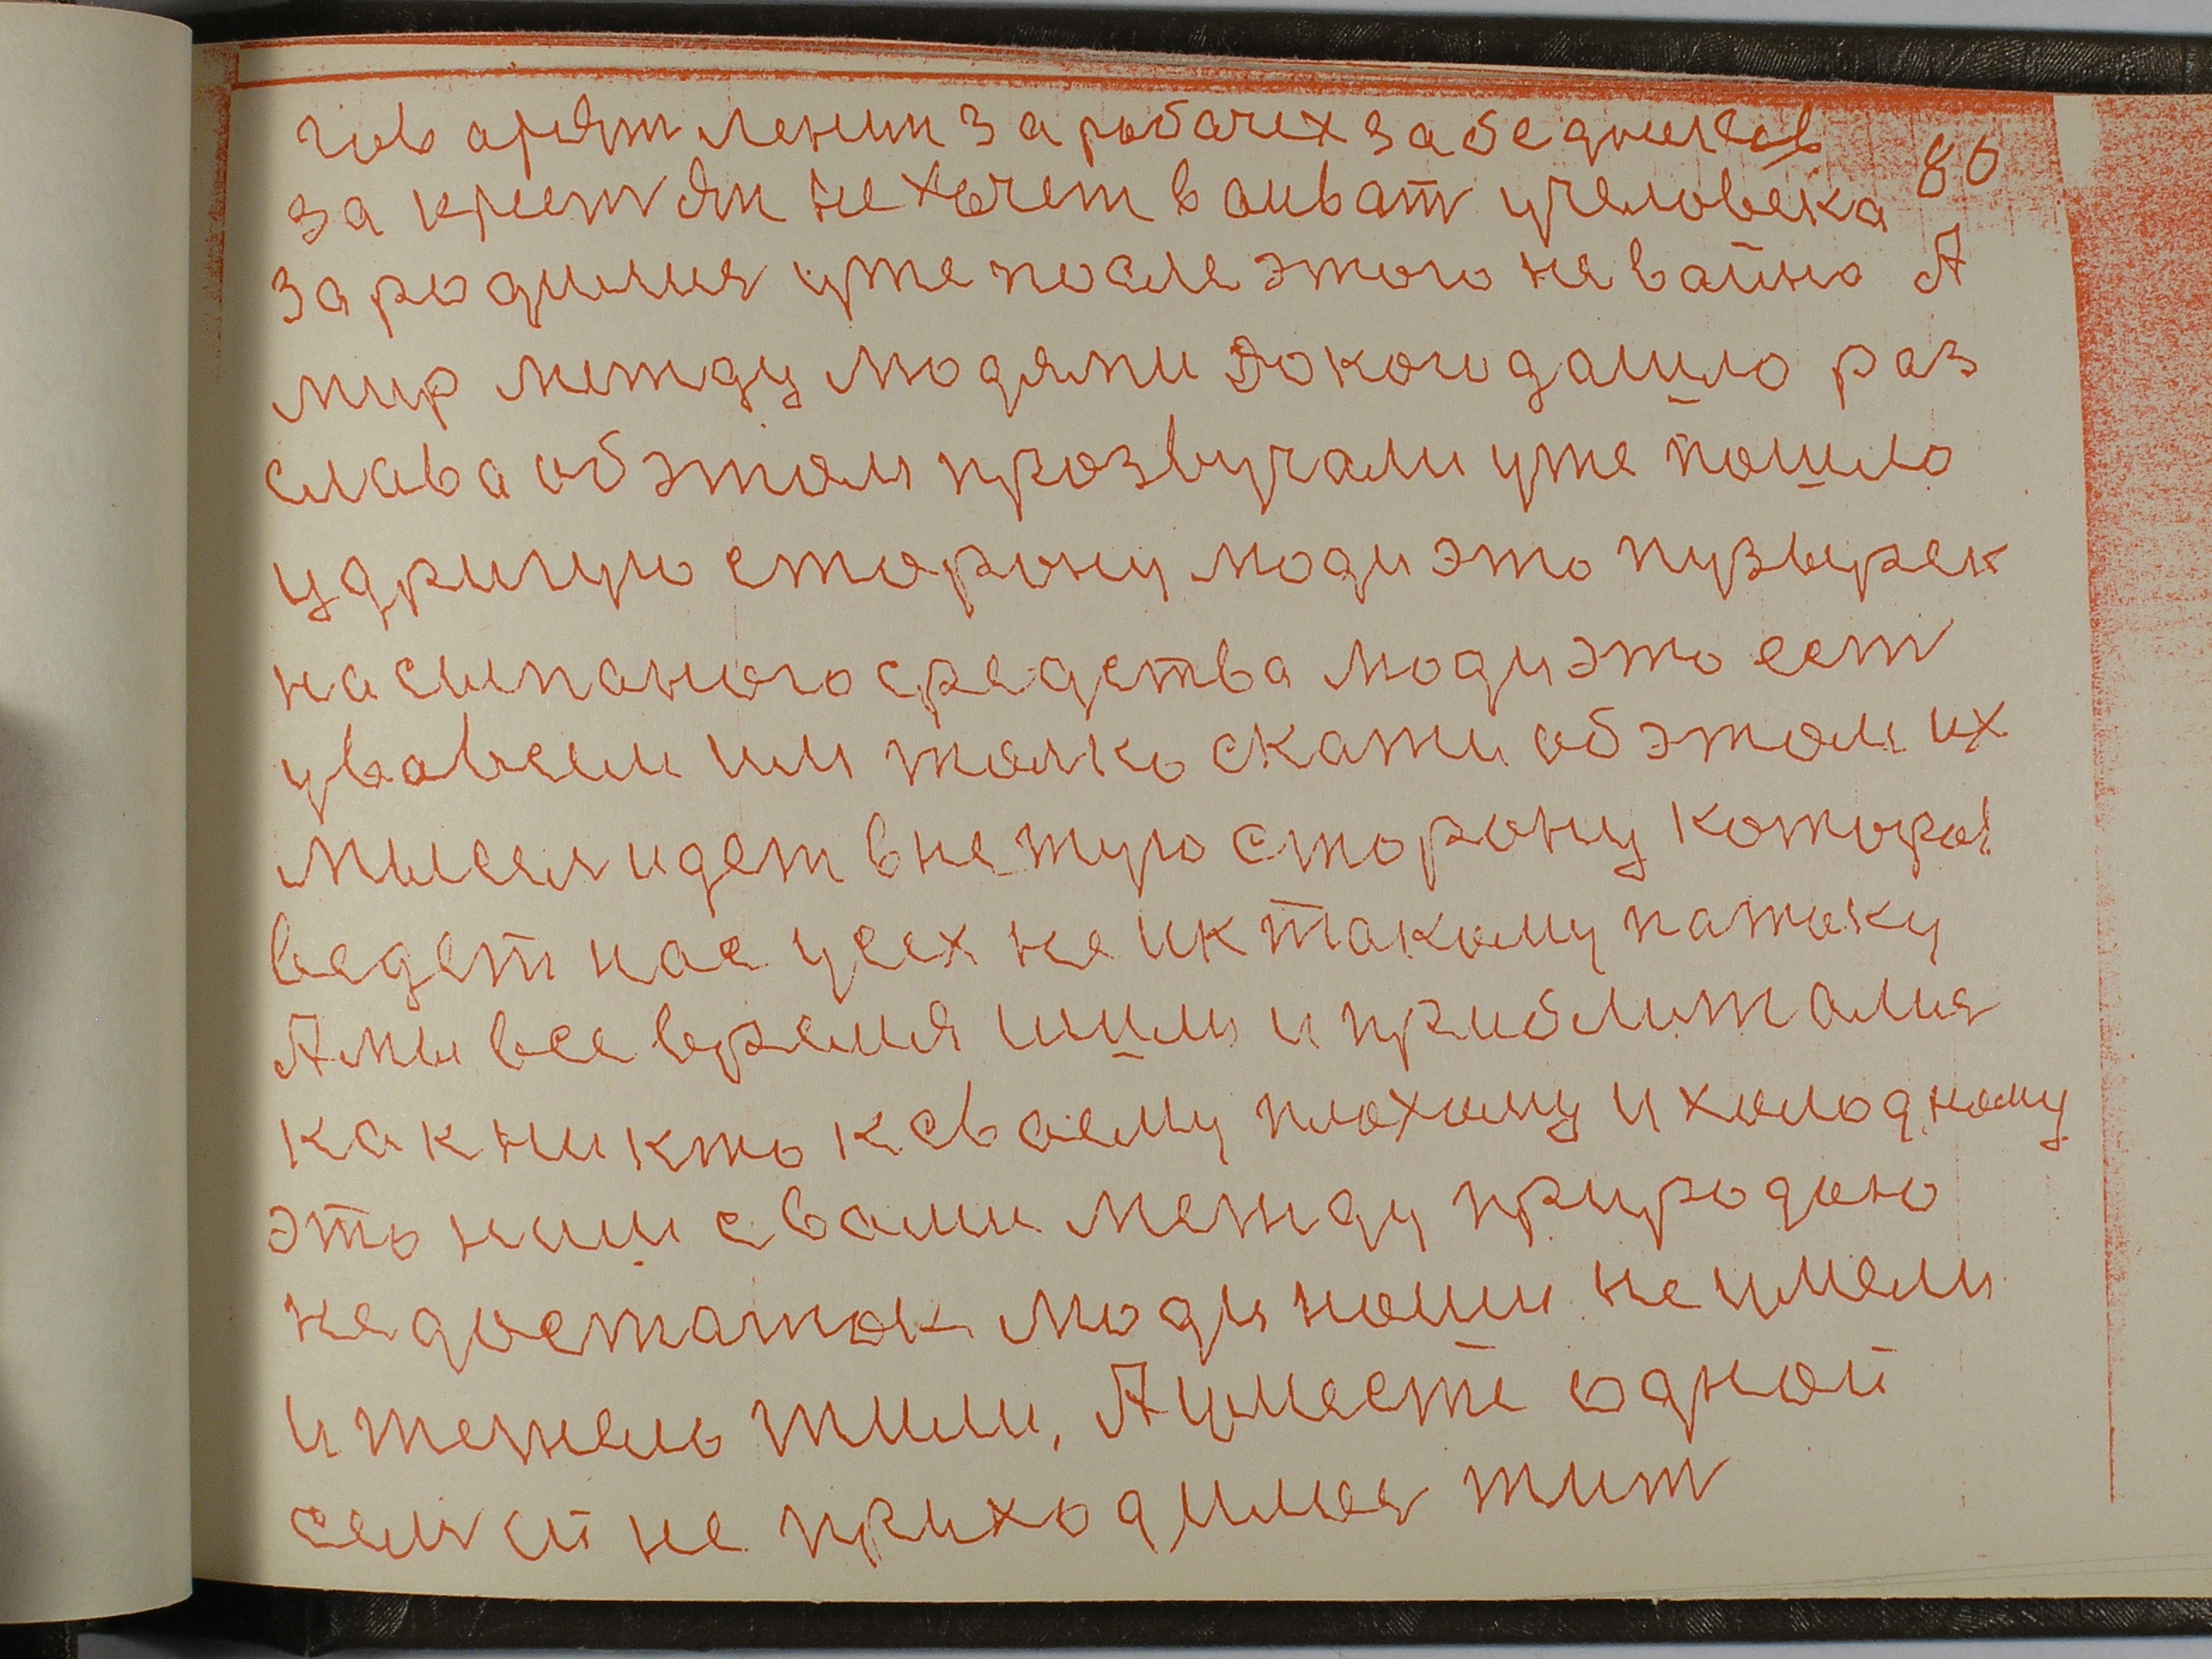 говарят ленин за рабачех за бедняков 80
за крестян не хочет ваиват учеловека
зародилия уже после этого не вайно А
мир между людями докого дашло раз
слава об этом прозвучали уже пошло
удригую сторону люди это пузырек
насыпоного средства люди это ест
уво всем им толко скажи об этом их
мысея идет в не тую сторону которы
ведет нас усех не ик такому патоку
А мы все время шили и приближалия
как никто ксвоему плохому и холодному
это ними сваими между природою
недостаток люди наши не имели
и тежело жили, А уместе одной
семей не приходился жит